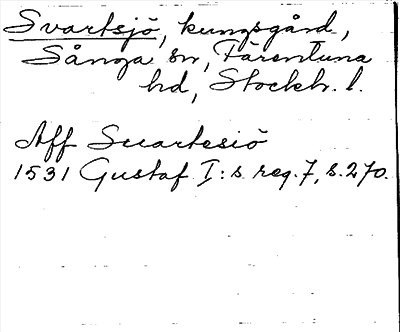 Svartsjö, kungsgård,
Sånga sn, Färentuna
hd, Stockh. l.
Aff Suartesiö
1531 Gustaf I:s reg. 7, s. 270.